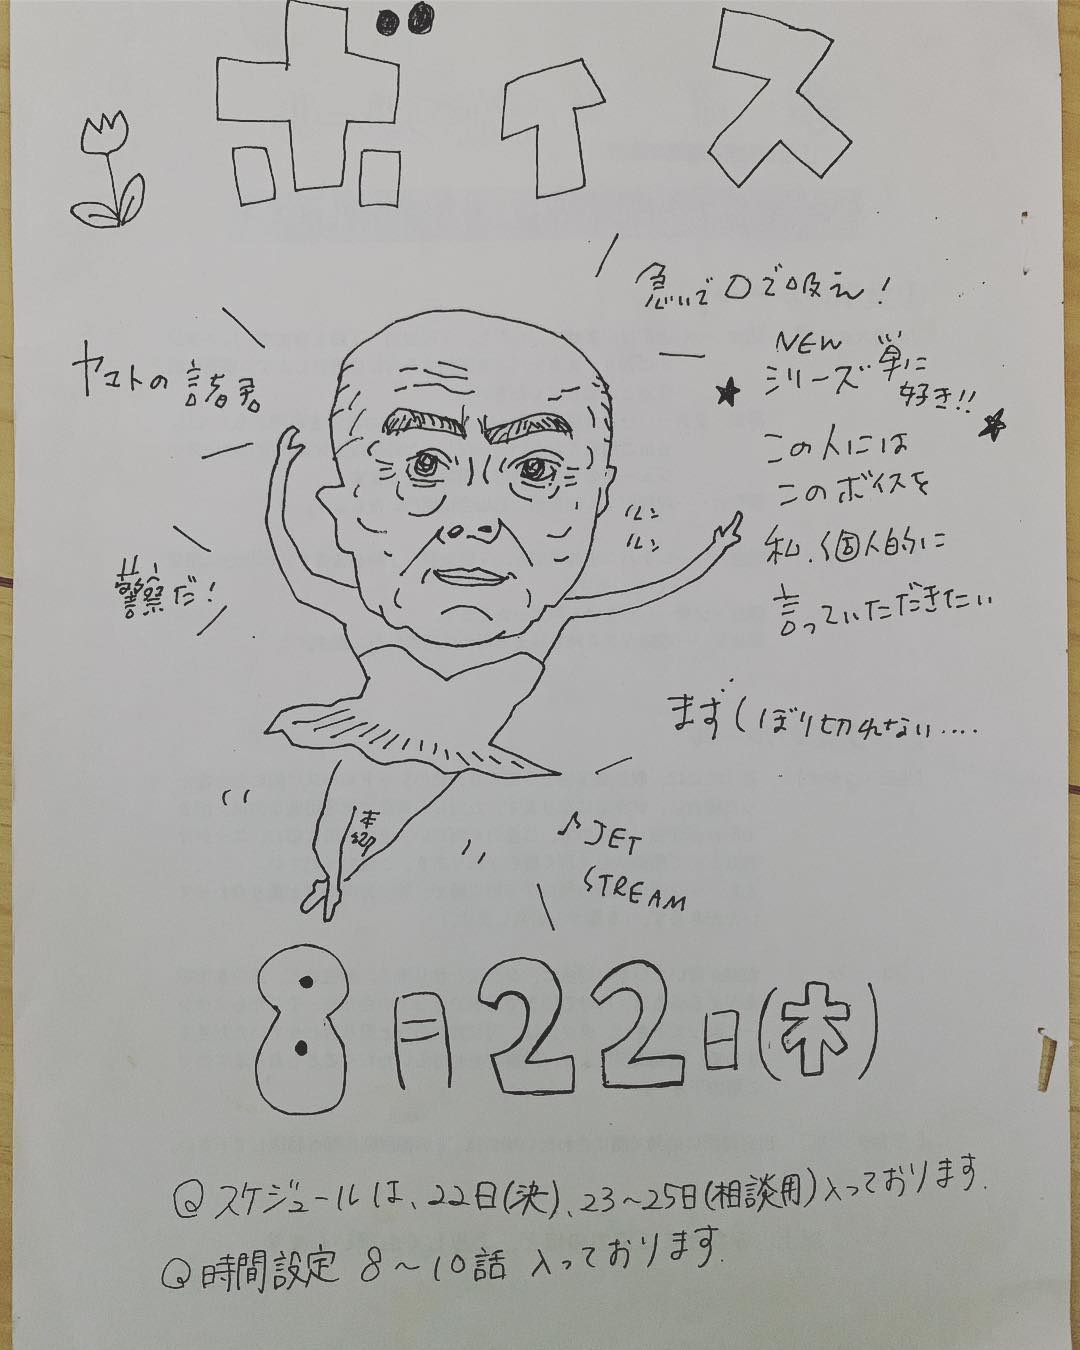 ボイス
急いで口で吸え!
ヤマトの諸君
NEW
シリーズ 単に
好き!!
この人には
このボイスを
私、個人的に
言っていただきたい
ルン
ルン
警察だ!
まずしぼり切れない....
♪JET
STREAM
8月22日(木)
◎スケジュールは、22日(決)、23〜25日(相談用)入っております.
◎時間設定 8〜10話 入っております.